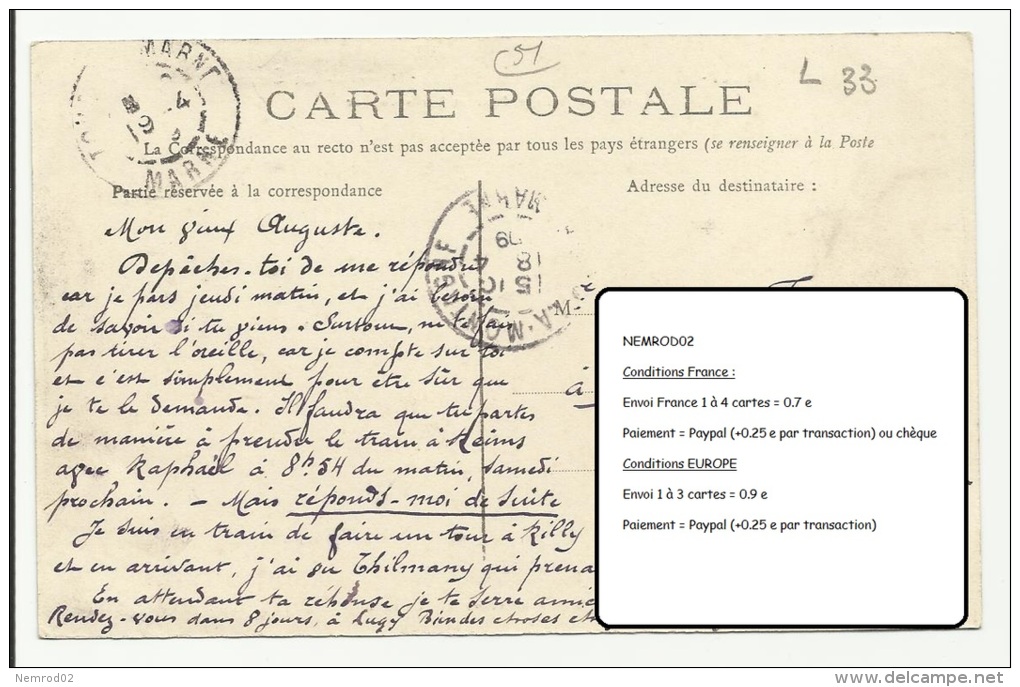 51
L 33
MARNE
MARNE
CARTE POSTALE
La Correspondance au recto n'est pas acceptée par tous les pays étrangers (se renseigner à la Poste
Partie réservée à la correspondance
Adresse du destinataire :
MARNE
09
18 4
15 10
LA-MONTAGNE
Mon vieux Auguste.
Depêches-toi de me répondre
car je pars jeudi matin, et j'ai besoin
de savoir si tu viens. Surtout, ne te fais
pas tirer l'oreille, car je compte sur toi
et c'est simplement pour être sûr que
je te le demande. Il faudra que tu partes
de manière à prendre le train à Reims
avec Raphaël à 8h54 du matin, samedi
prochain. - Mais réponds-moi de suite
Je suis en train de faire un tour à Rilly
et en arrivant, j'ai vu Thilmany qui
En attendant ta réponse je te serre
Rendez-vous dans 8 jours, à Lugy Bien des choses
M-
à
NEMROD02
Conditions France :
Envoi France 1 à 4 cartes = 0.7 e
Paiement = Paypal (+0.25 e par transaction) ou chèque
Conditions EUROPE
Envoi 1 à 3 cartes = 0.9 e
Paiement = Paypal (+0.25 e par transaction)
Nemrod02
www.delcampe.net